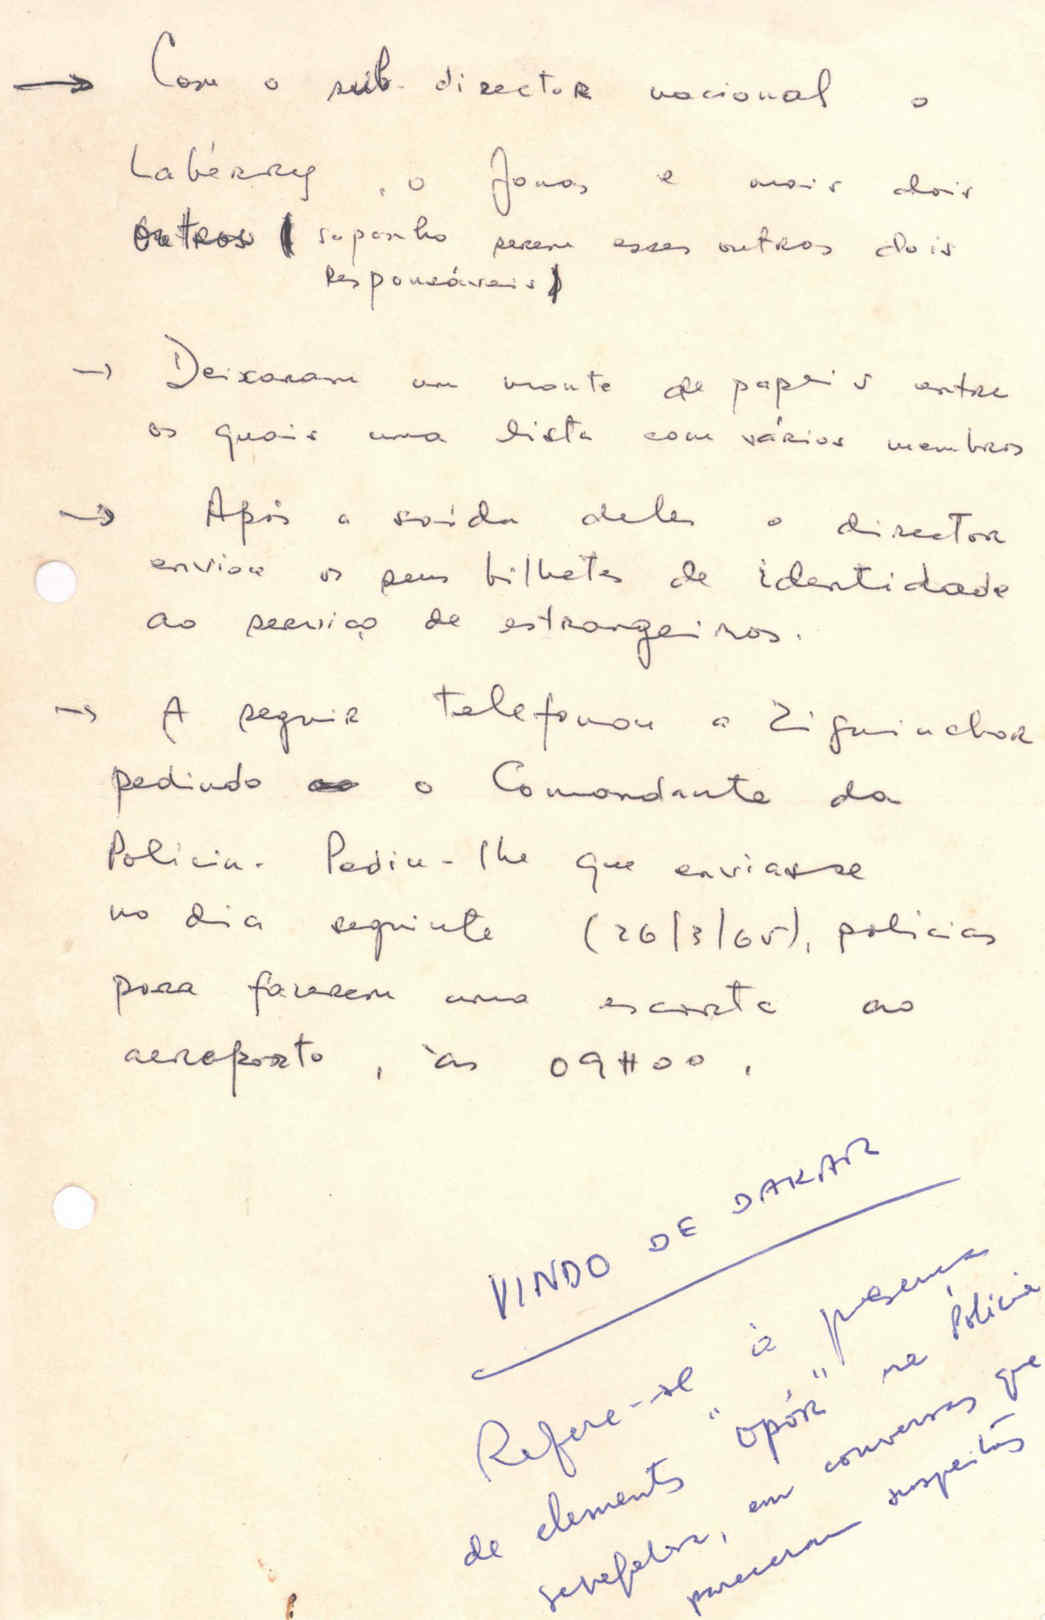 → Com o sub-director nacional o
Labérry, o Jonas e mais dois
outros (suponho serem esses outros dois
responsáveis)
→ Deixaram um monte de papeis entre
os quais uma lista com vários membros
→ Após a saída deles o director
enviou os seus bilhetes de identidade
ao serviço de estrangeiros.
→ A seguir telefonou a Ziguinchor
pedindo o Comandante da
Policia. Pediu-lhe que enviasse
no dia seguinte (26/3/65), policias
para fazerem uma escorta ao
aeroporto, às 09H00.
VINDO DE DAKAR
Refere-se à presença
de elementos "opór" na Policia
senegalesa, em conversas que
pareceram suspeitas